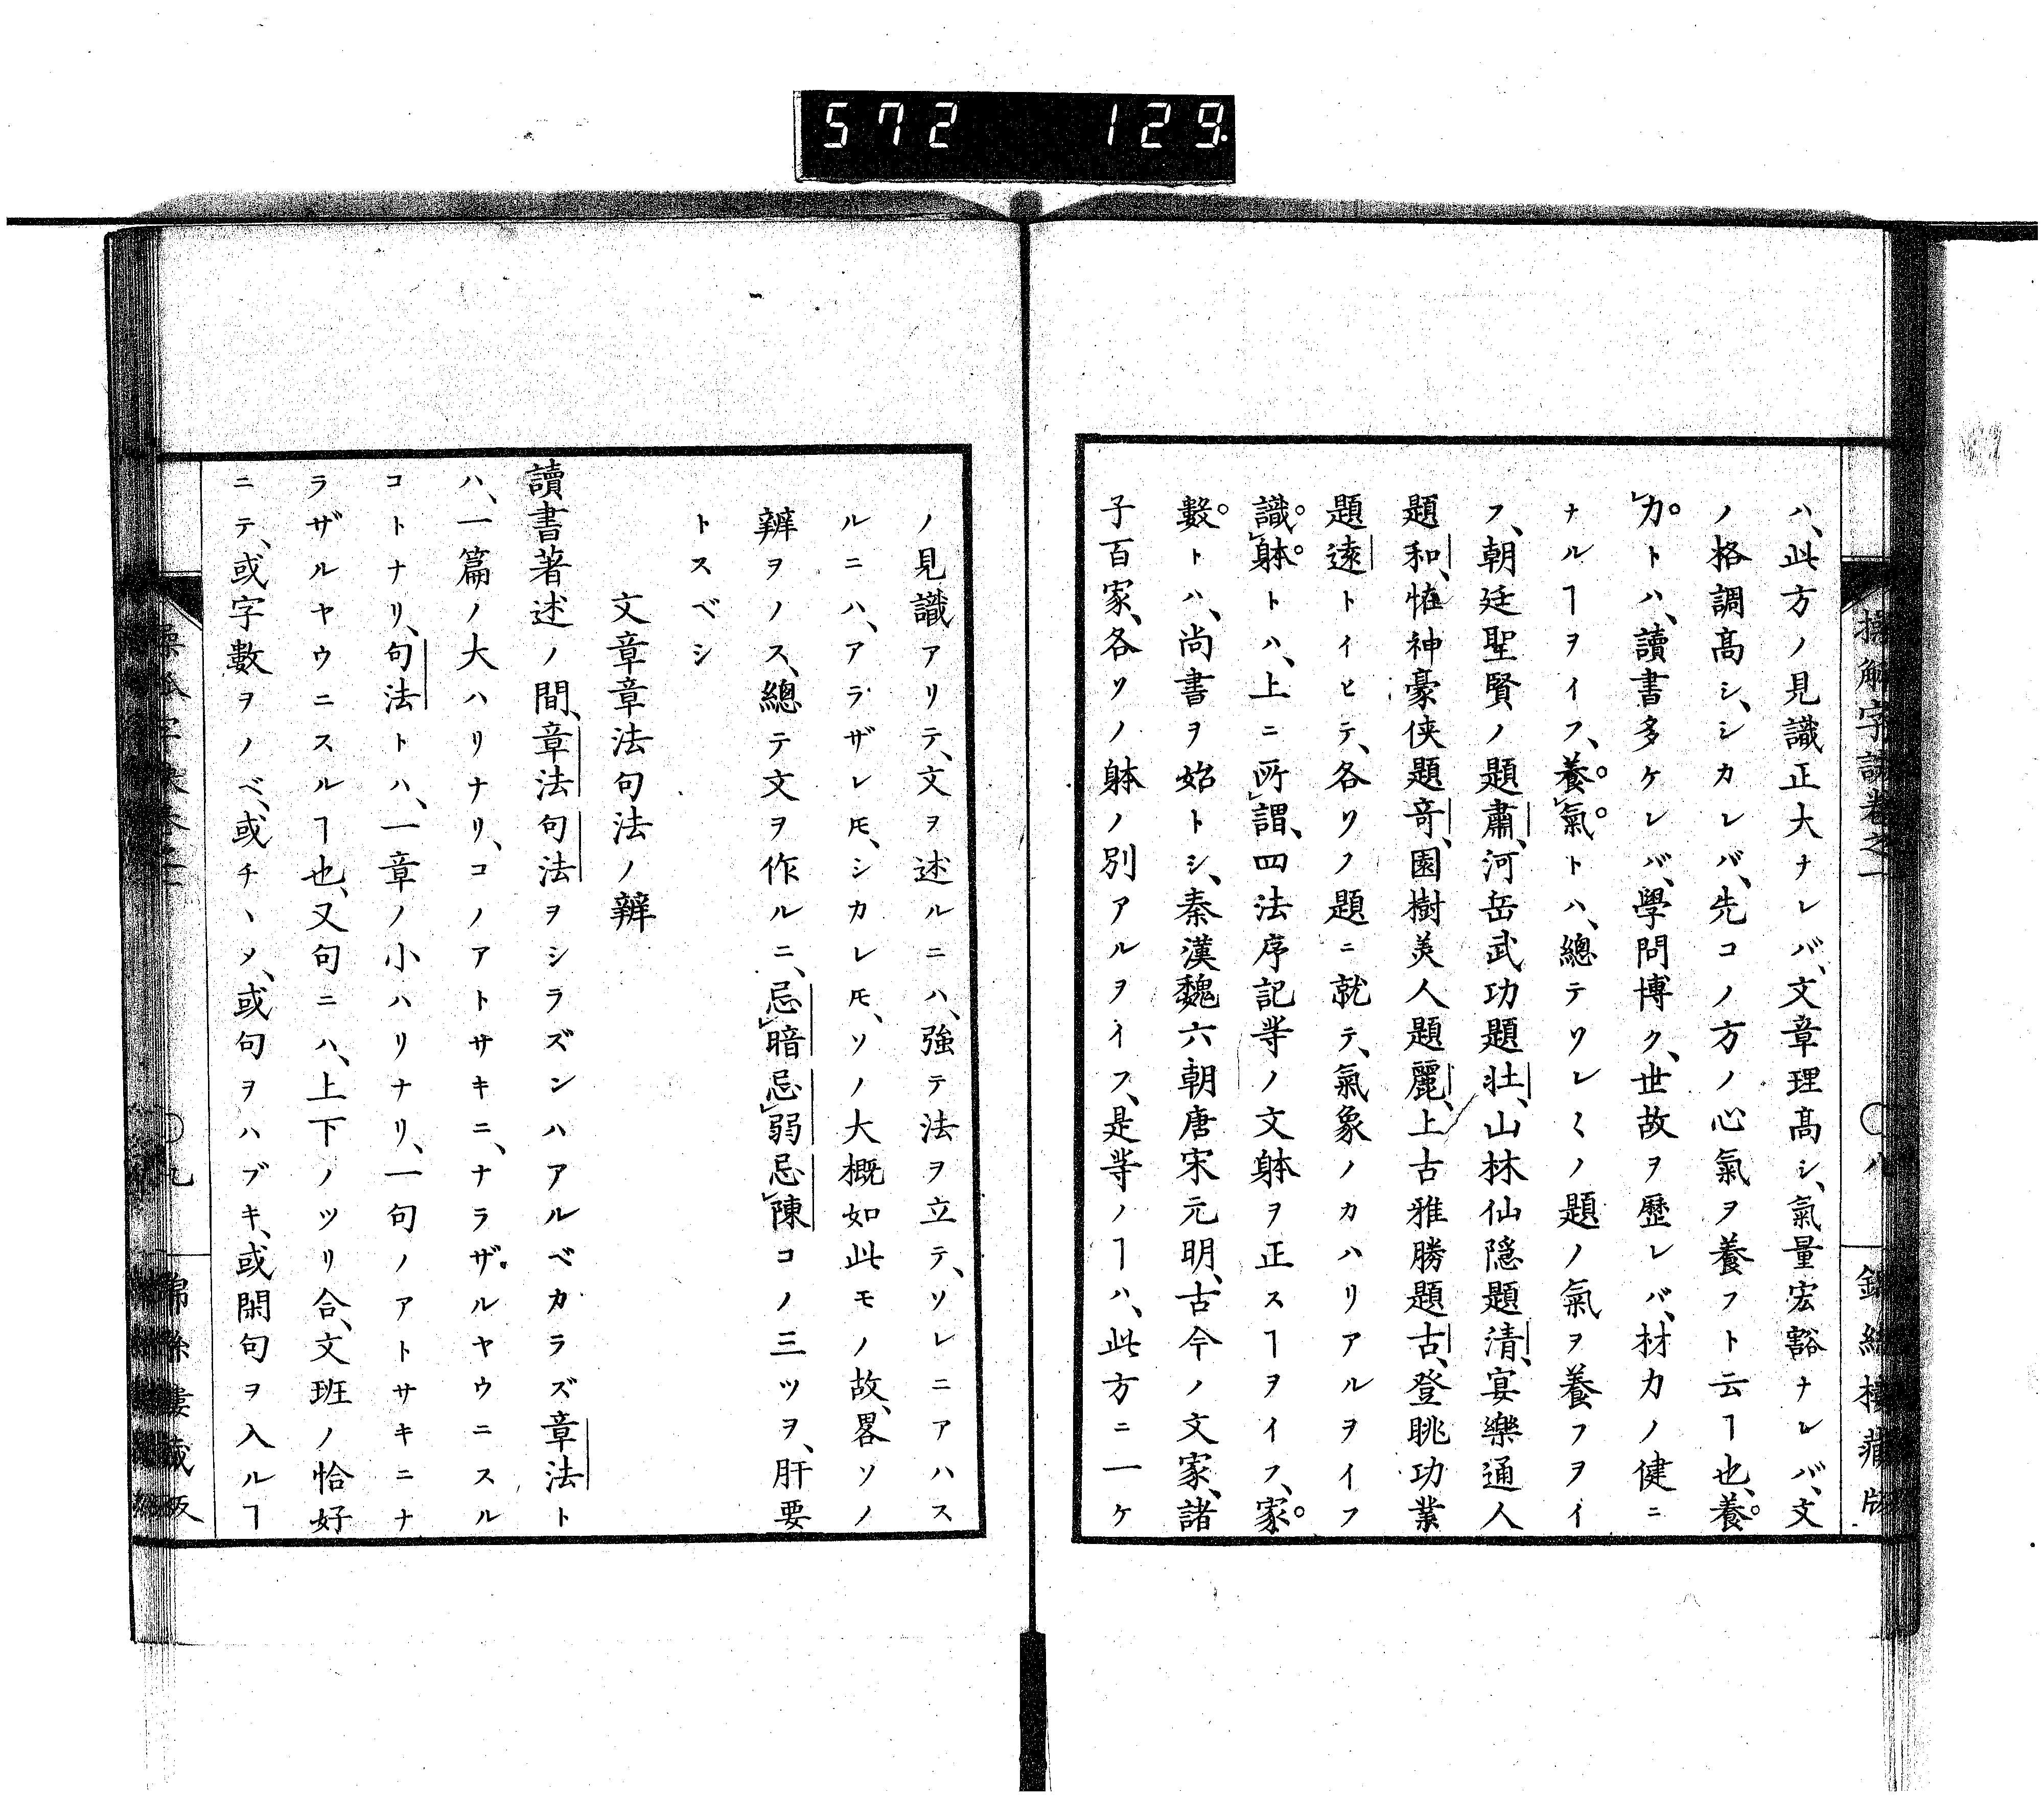 572 129.
ハ、此方ノ見識正大ナレバ、文章理髙シ、氣量宏豁ナレバ、文
ノ格調髙シ、シカレバ、先コノ方ノ心氣ヲ養フト云ヿ也、養
力トハ、讀書多ケレバ、學問博ク、世故ヲ歷レバ、材力ノ健ニ
ナルヿヲイフ、養氣トハ、總テソレ〱ノ題ノ氣ヲ養フヲイ
フ、朝廷聖賢ノ題肅、河岳武功題壮、山林仙隠題清、宴樂通人
題和、恠神豪侠題竒、園樹美人題麗、上古雅勝題古、登眺功業
題遠トイヒテ、各〻ノ題ニ就テ、氣象ノカハリアルヲイフ
識躰トハ、上ニ所謂、四法序記等ノ文躰ヲ正スヿヲイフ、家
數トハ、尚書ヲ始トシ、秦漢魏六朝唐宋元明、古今ノ文家、諸
子百家、各〻ノ躰ノ別アルヲイフ、是等ノヿハ、此方ニ一ケ
ノ見識アリテ、文ヲ述ルニハ、強テ法ヲ立テ、ソレニアハス
ルニハ、アラザレ𪜈、シカレ𪜈、ソノ大概如此モノ故、畧ソノ
辨ヲノス、總テ文ヲ作ルニ、忌暗忌弱忌陳コノ三ツヲ、肝要
トスベシ
文章章法句法ノ辨
讀書著述ノ間、章法句法ヲシラズンハアルベカラズ章法ト
ハ、一篇ノ大ハリナリ、コノアトサキニ、ナラザルヤウニスル
コトナリ、句法トハ、一章ノ小ハリナリ、一句ノアトサキニナ
ラザルヤウニスルヿ也、又句ニハ、上下ノツリ合、文班ノ恰好
ニテ、或字數ヲノベ、或チヽメ、或句ヲハブキ、或閑句ヲ入ルヿ
字訣卷之一
〇八
錦絲樓藏版